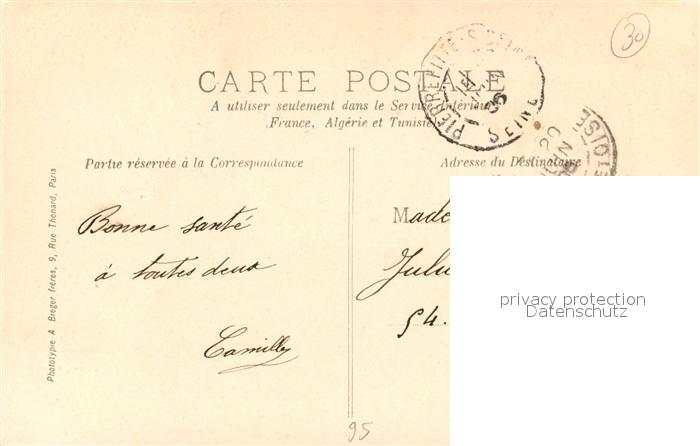 30
CARTE POSTALE
A utiliser seulement dans le Service Intérieur
France, Algérie et Tunisie
PIERREFITTE-S-SEINE
SEINE
Partie réservée à la Correspondance
Adresse du Destinataire
Bonne santé
à toutes deux
Camille
Made
Julu
54.
privacy protection
Datenschutz
Phototypie A Breger frères, 9, Rue Thenard, Paris
95